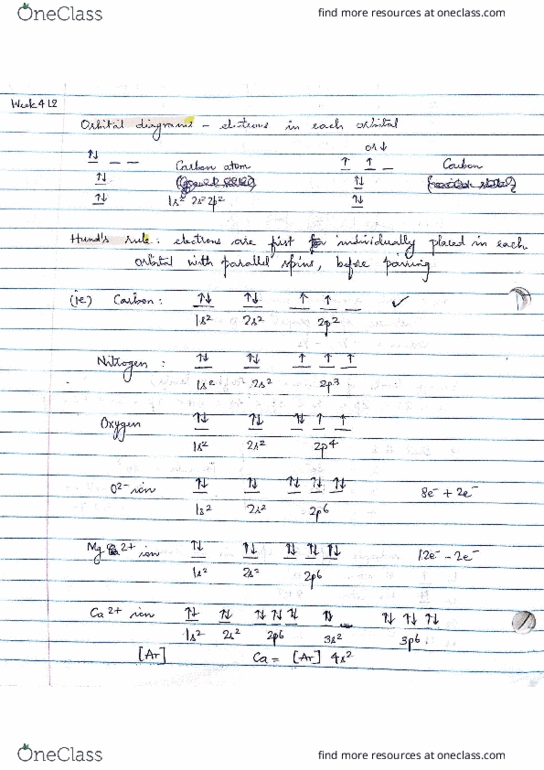 OneClass find more resources at oneclass.com
Week 4 L2
Orbital diagrams – electrons in each orbital
or ↓
↑↓ _ _ Carbon atom ↑ ↑ _ Carbon
↑↓ ↑↓
↑↓ 1s² 2s² 2p² ↑↓
Hund's rule: electrons are first individually placed in each
orbital with parallel spins, before pairing
(ie) Carbon: ↑↓ ↑↓ ↑ ↑ _ ✓
1s² 2s² 2p²
Nitrogen: ↑↓ ↑↓ ↑ ↑ ↑
1s² 2s² 2p³
Oxygen ↑↓ ↑↓ ↑↓ ↑ ↑
1s² 2s² 2p⁴
O²⁻ ion ↑↓ ↑↓ ↑↓ ↑↓ ↑↓ 8e⁻ + 2e⁻
1s² 2s² 2p⁶
Mg 2+ ion ↑↓ ↑↓ ↑↓ ↑↓ ↑↓ 12e⁻ – 2e⁻
1s² 2s² 2p⁶
Ca 2+ ion ↑↓ ↑↓ ↑↓ ↑↓ ↑↓ ↑↓ _ ↑↓ ↑↓ ↑↓
1s² 2s² 2p⁶ 3s² 3p⁶
[Ar] Ca = [Ar] 4s²
OneClass find more resources at oneclass.com